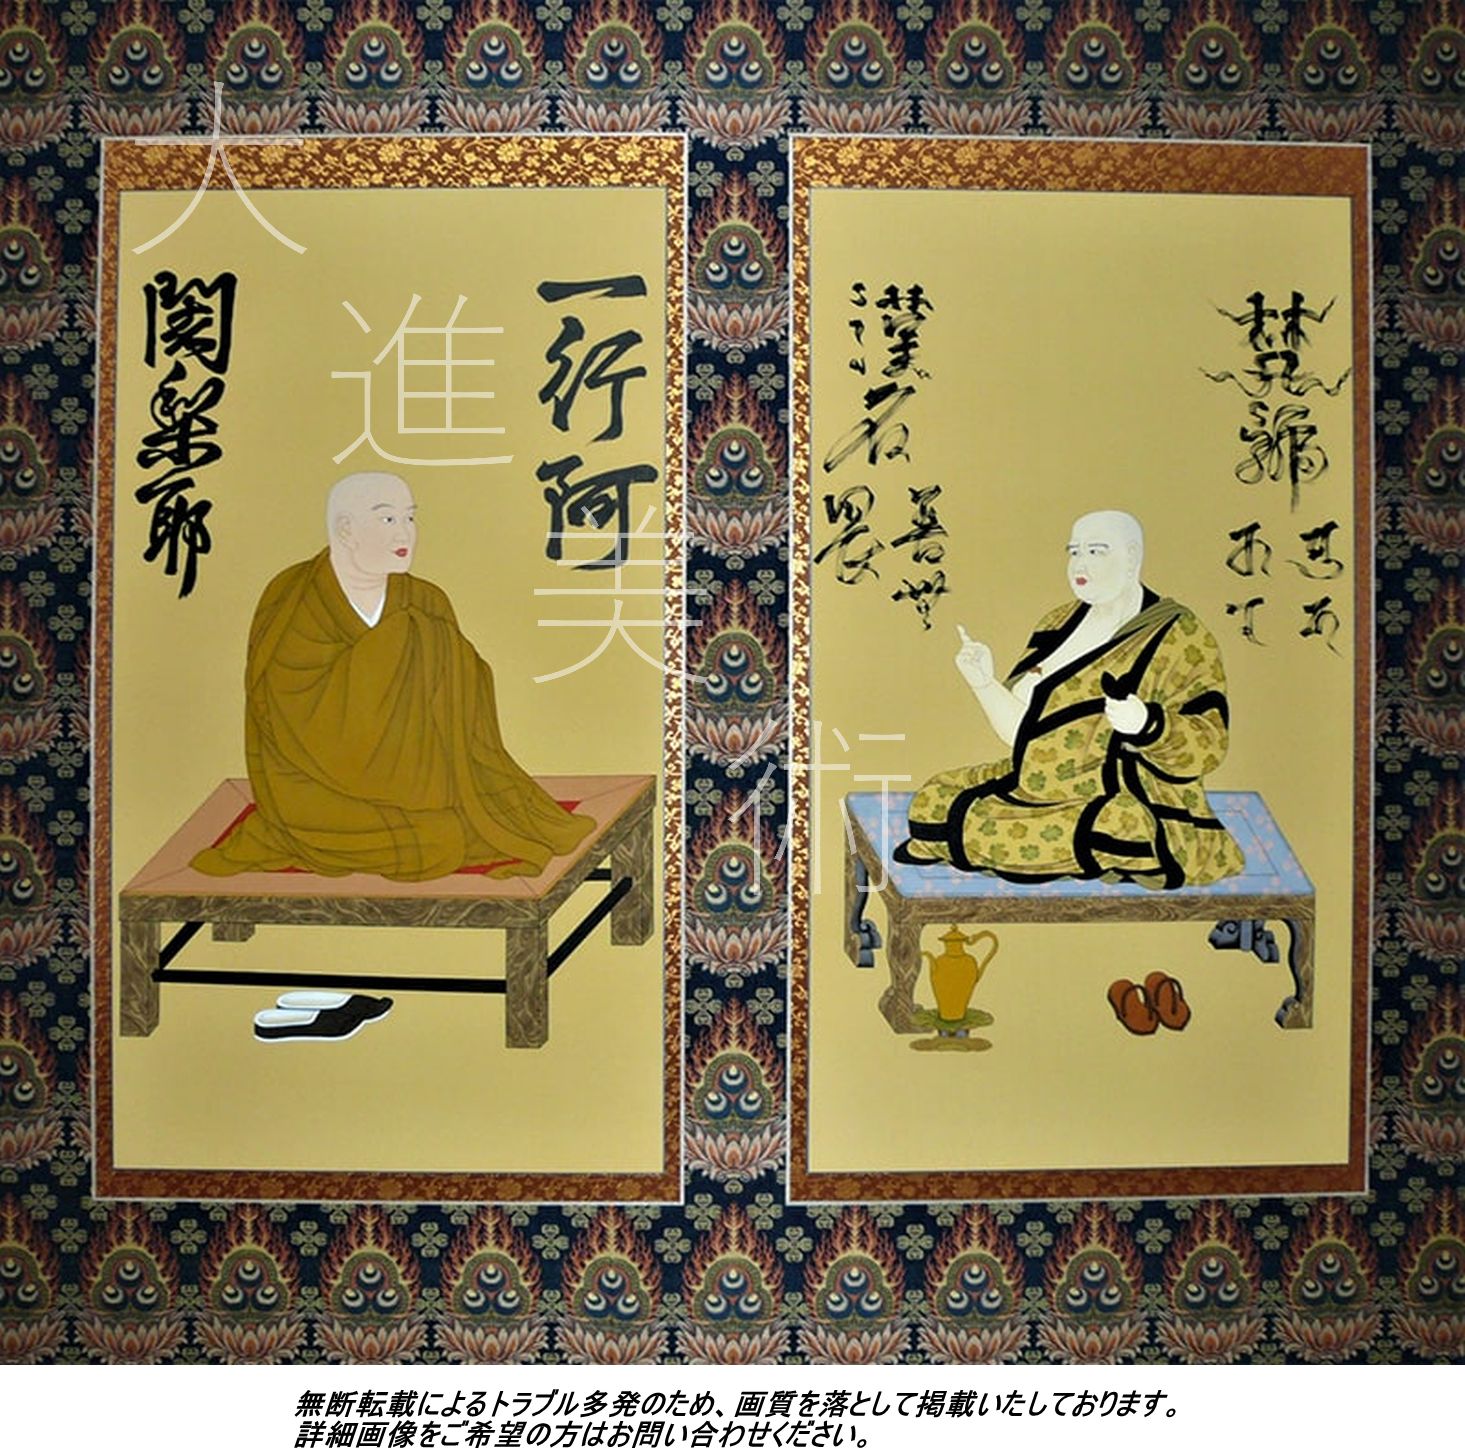 一行阿
闍梨耶
梵號
漢名
善無
畏
大進美術
無断転載によるトラブル多発のため、画質を落として掲載いたしております。
詳細画像をご希望の方はお問い合わせください。